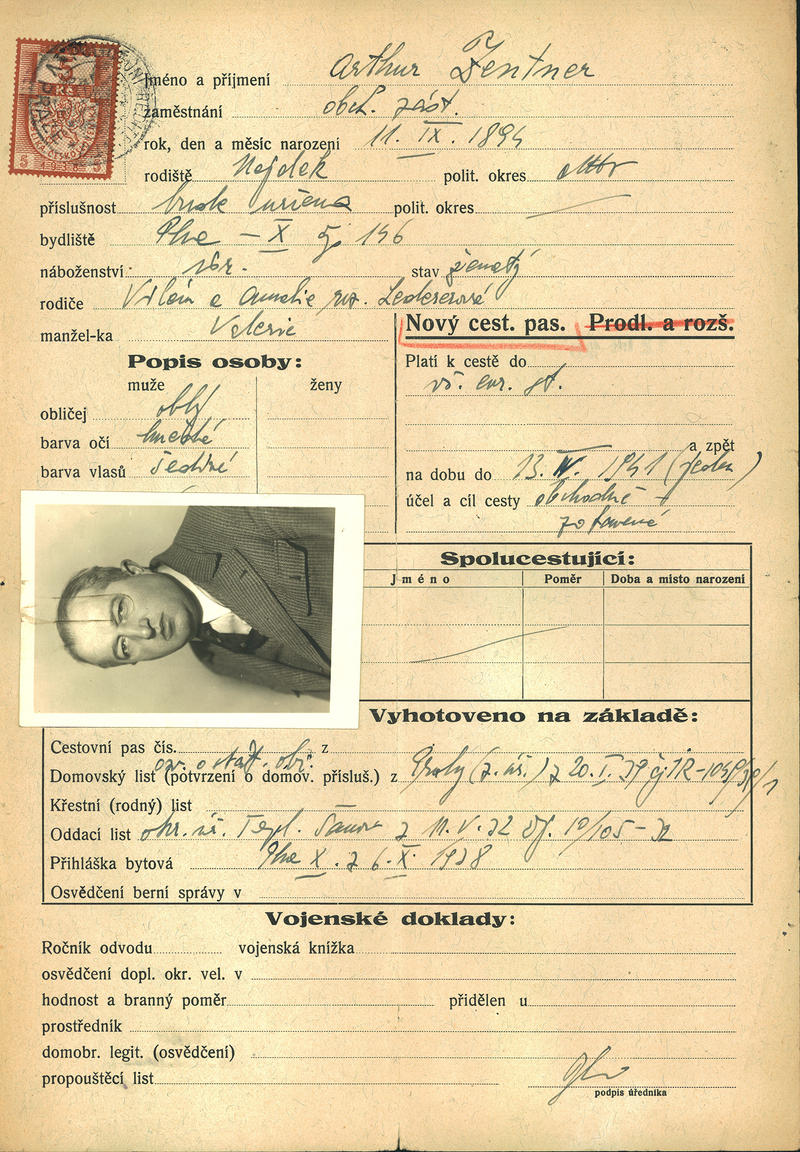 Jméno a příjmení Arthur Zentner
zaměstnání obch. zást.
rok, den a měsíc narození 11. IX. 1894
rodiště Nejdek polit. okres
příslušnost polit. okres
bydliště Pha – X čp 146
náboženství stav ženatý
rodiče Vilém a Amalie roz. Ledererová
manžel-ka Valerie
Nový cest. pas. Prodl. a rozš.
Popis osoby:
muže ženy
Platí k cestě do
vš. eur. st.
obličej oblý
barva očí hnědé
barva vlasů šedivé
a zpět
na dobu do 13. IV. 1941 (jeden)
účel a cíl cesty obchodně +
zotavené
Spolucestující:
Jméno Poměr Doba a místo narození
Vyhotoveno na základě:
Cestovní pas čís. z
osv. o stát. obč.
Domovský list (potvrzení o domov. přísluš.) z Prahy (z. úř.) z 20. I. 39
Křestní (rodný) list
Oddací list okr. úř. Tepl. Šanov z 11. V. 32 10/105 – 32
Přihláška bytová Pha X. z 6. X. 1928
Osvědčení berní správy v
Vojenské doklady:
Ročník odvodu vojenská knížka
osvědčení dopl. okr. vel. v
hodnost a branný poměr přidělen u
prostředník
domobr. legit. (osvědčení)
propouštěcí list
podpis úředníka